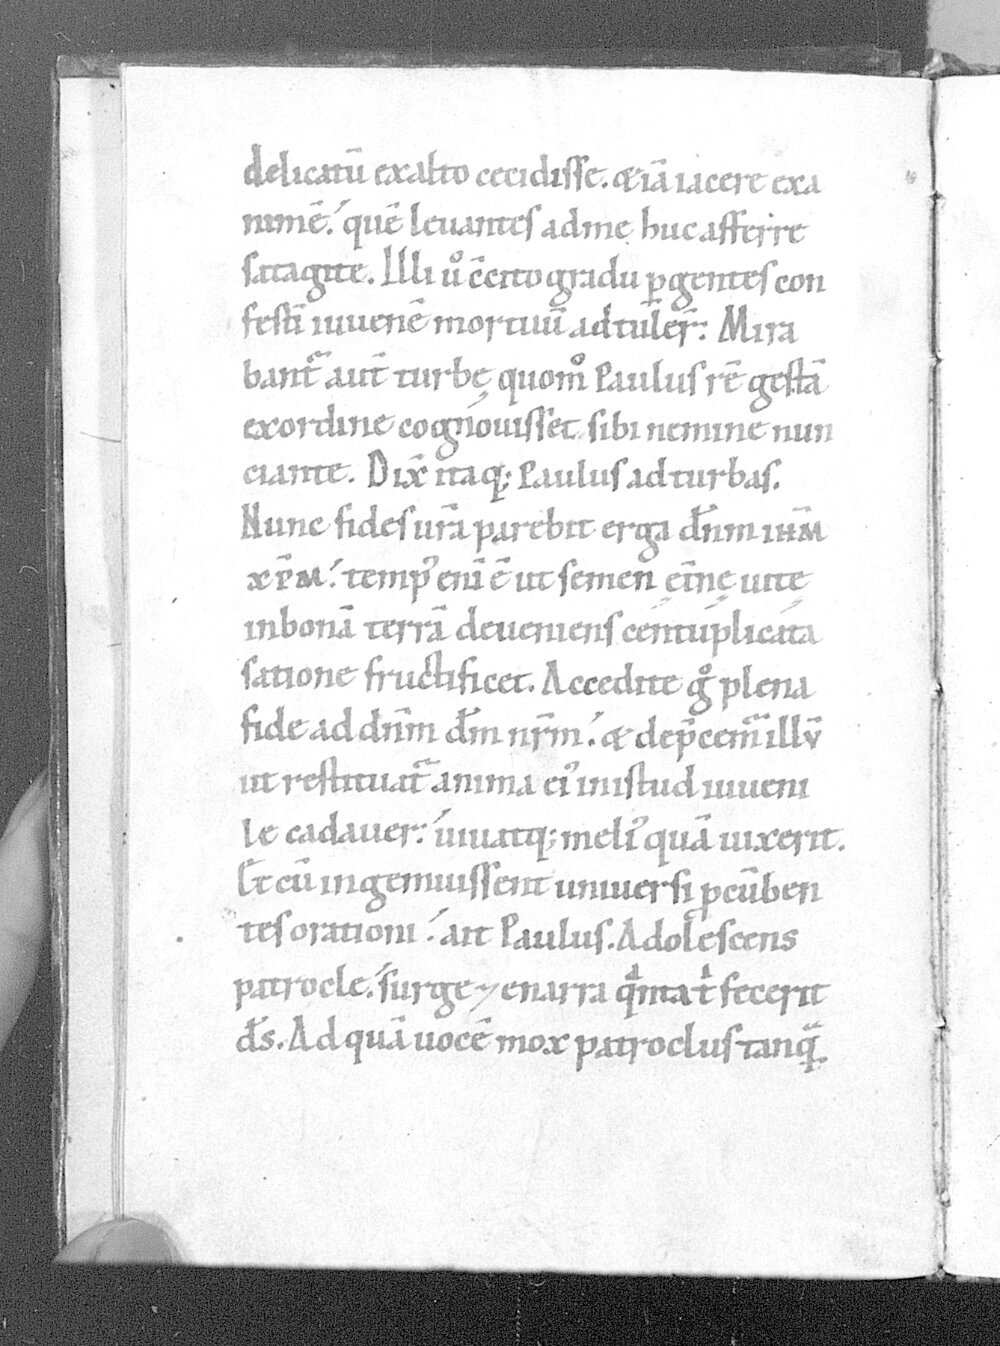 delicatū exalto cecidisse. & iā iacere exa
nimē. quē leuantes ad me huc afferre
satagite. Illi ů c̄cito gradu ꝑgentes con
festī iuuenē mortuū adtuler̄. Mira
bantᷓ aut̄ turbę quom̊ Paulus rē gestā
exordine cognouisset sibi nemine nun
ciante. Dix̄ itaq; Paulus ad turbas.
Nunc fides ur̄a parebit erga dn̄m ihm̄
xp̄m. temp᾽ enī ē ut semen et̄nę uitę
inbonā terrā deueniens centuplicata
satione fructificet. Accedite g̊ plena
fide ad dn̄m dm̄ nr̄m. & dep̄cemᷓ illū
ut restituatᷓ anima ei᾽ in istud iuueni
le cadauer. uiuatq; meli᾽ quā uixerit.
Et cū ingemuissent uniuersi ꝓcūben
tes orationi. ait Paulus. Adolescens
patrocle. surge ⁊ enarra qͣnta t̄ fecerit
ds̄. Ad quā uocē mox patroclus tanqᷓ